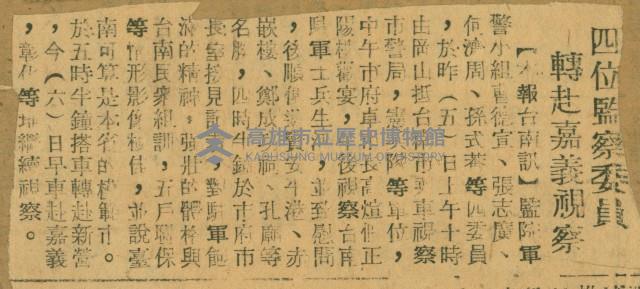 四位監察委員
轉赴嘉義視察
【本報台南訊】監院軍
警小組曹德宣、張志廣、
何濟周、孫式菴等四委員
於昨（五）日上午十時
由岡山抵台南市乘車視察
市警局，憲兵隊等單位，
中午市府卓市長高煊假正
陽樓歡宴，午後視察台南
軍士兵生活，並致慰問
，後順便遊覽安平港、赤
嵌樓、鄭成功祠、孔廟等
名勝，四時半鐘於市府市
長室接見記者，對駐軍飽
滿的精神，強壯的體格與
台南民衆組訓，五戶聯保
等情形影像極佳，並說臺
南可算是本省的模範市。
於五時半鐘搭車轉赴新營
，今（六）日早車赴嘉義
，彰化等地繼續視察。
高雄市立歷史博物館
KAOHSIUNG MUSEUM OF HISTORY